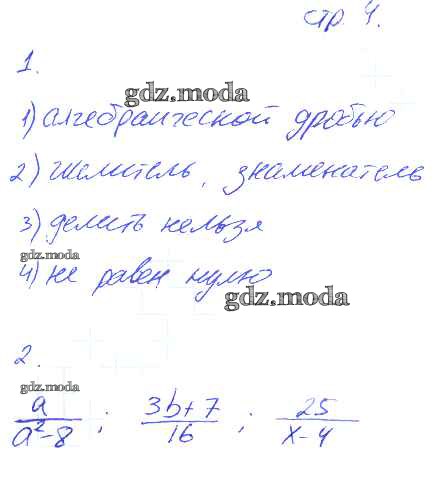 стр. 4.
1.
gdz.moda
1) алгебраической дробью
2) числитель, знаменатель
3) делить нельзя
gdz.moda
4) не равен нулю
gdz.moda
2.
gdz.moda
a/(a²-8) ; (3b+7)/16 ; 25/(x-4)